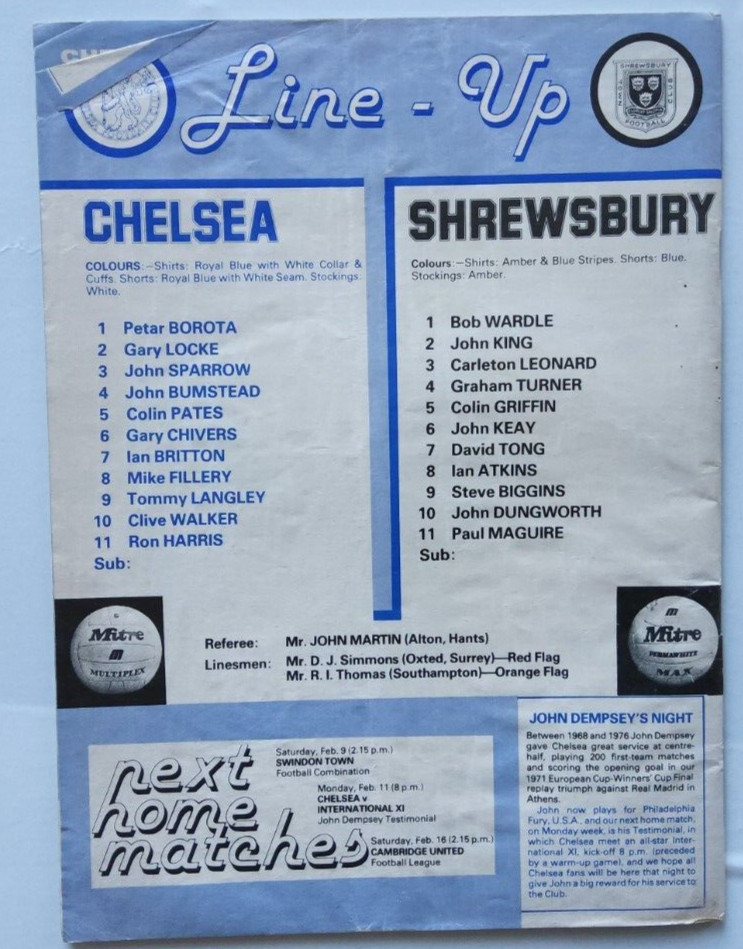 CHE
Line - Up
SHREWSBURY
TOWN
CLUB
FOOTBALL
CHELSEA
COLOURS:—Shirts: Royal Blue with White Collar &
Cuffs. Shorts: Royal Blue with White Seam. Stockings:
White.
1 Petar BOROTA
2 Gary LOCKE
3 John SPARROW
4 John BUMSTEAD
5 Colin PATES
6 Gary CHIVERS
7 Ian BRITTON
8 Mike FILLERY
9 Tommy LANGLEY
10 Clive WALKER
11 Ron HARRIS
Sub:
SHREWSBURY
Colours:—Shirts: Amber & Blue Stripes. Shorts: Blue.
Stockings: Amber.
1 Bob WARDLE
2 John KING
3 Carleton LEONARD
4 Graham TURNER
5 Colin GRIFFIN
6 John KEAY
7 David TONG
8 Ian ATKINS
9 Steve BIGGINS
10 John DUNGWORTH
11 Paul MAGUIRE
Sub:
Mitre
m
MULTIPLEX
Referee: Mr. JOHN MARTIN (Alton, Hants)
Linesmen: Mr. D. J. Simmons (Oxted, Surrey)—Red Flag
Mr. R. I. Thomas (Southampton)—Orange Flag
m
Mitre
PERMAWHITE
MAX
next
home
matches
Saturday, Feb. 9 (2.15 p.m.)
SWINDON TOWN
Football Combination
Monday, Feb. 11 (8 p.m.)
CHELSEA v
INTERNATIONAL XI
John Dempsey Testimonial
Saturday, Feb. 16 (2.15 p.m.)
CAMBRIDGE UNITED
Football League
JOHN DEMPSEY'S NIGHT
Between 1968 and 1976 John Dempsey
gave Chelsea great service at centre-
half, playing 200 first-team matches
and scoring the opening goal in our
1971 European Cup-Winners' Cup Final
replay triumph against Real Madrid in
Athens.
John now plays for Philadelphia
Fury, U.S.A., and our next home match,
on Monday week, is his Testimonial, in
which Chelsea meet an all-star Inter-
national XI, kick-off 8 p.m. (preceded
by a warm-up game), and we hope all
Chelsea fans will be here that night to
give John a big reward for his service to
the Club.